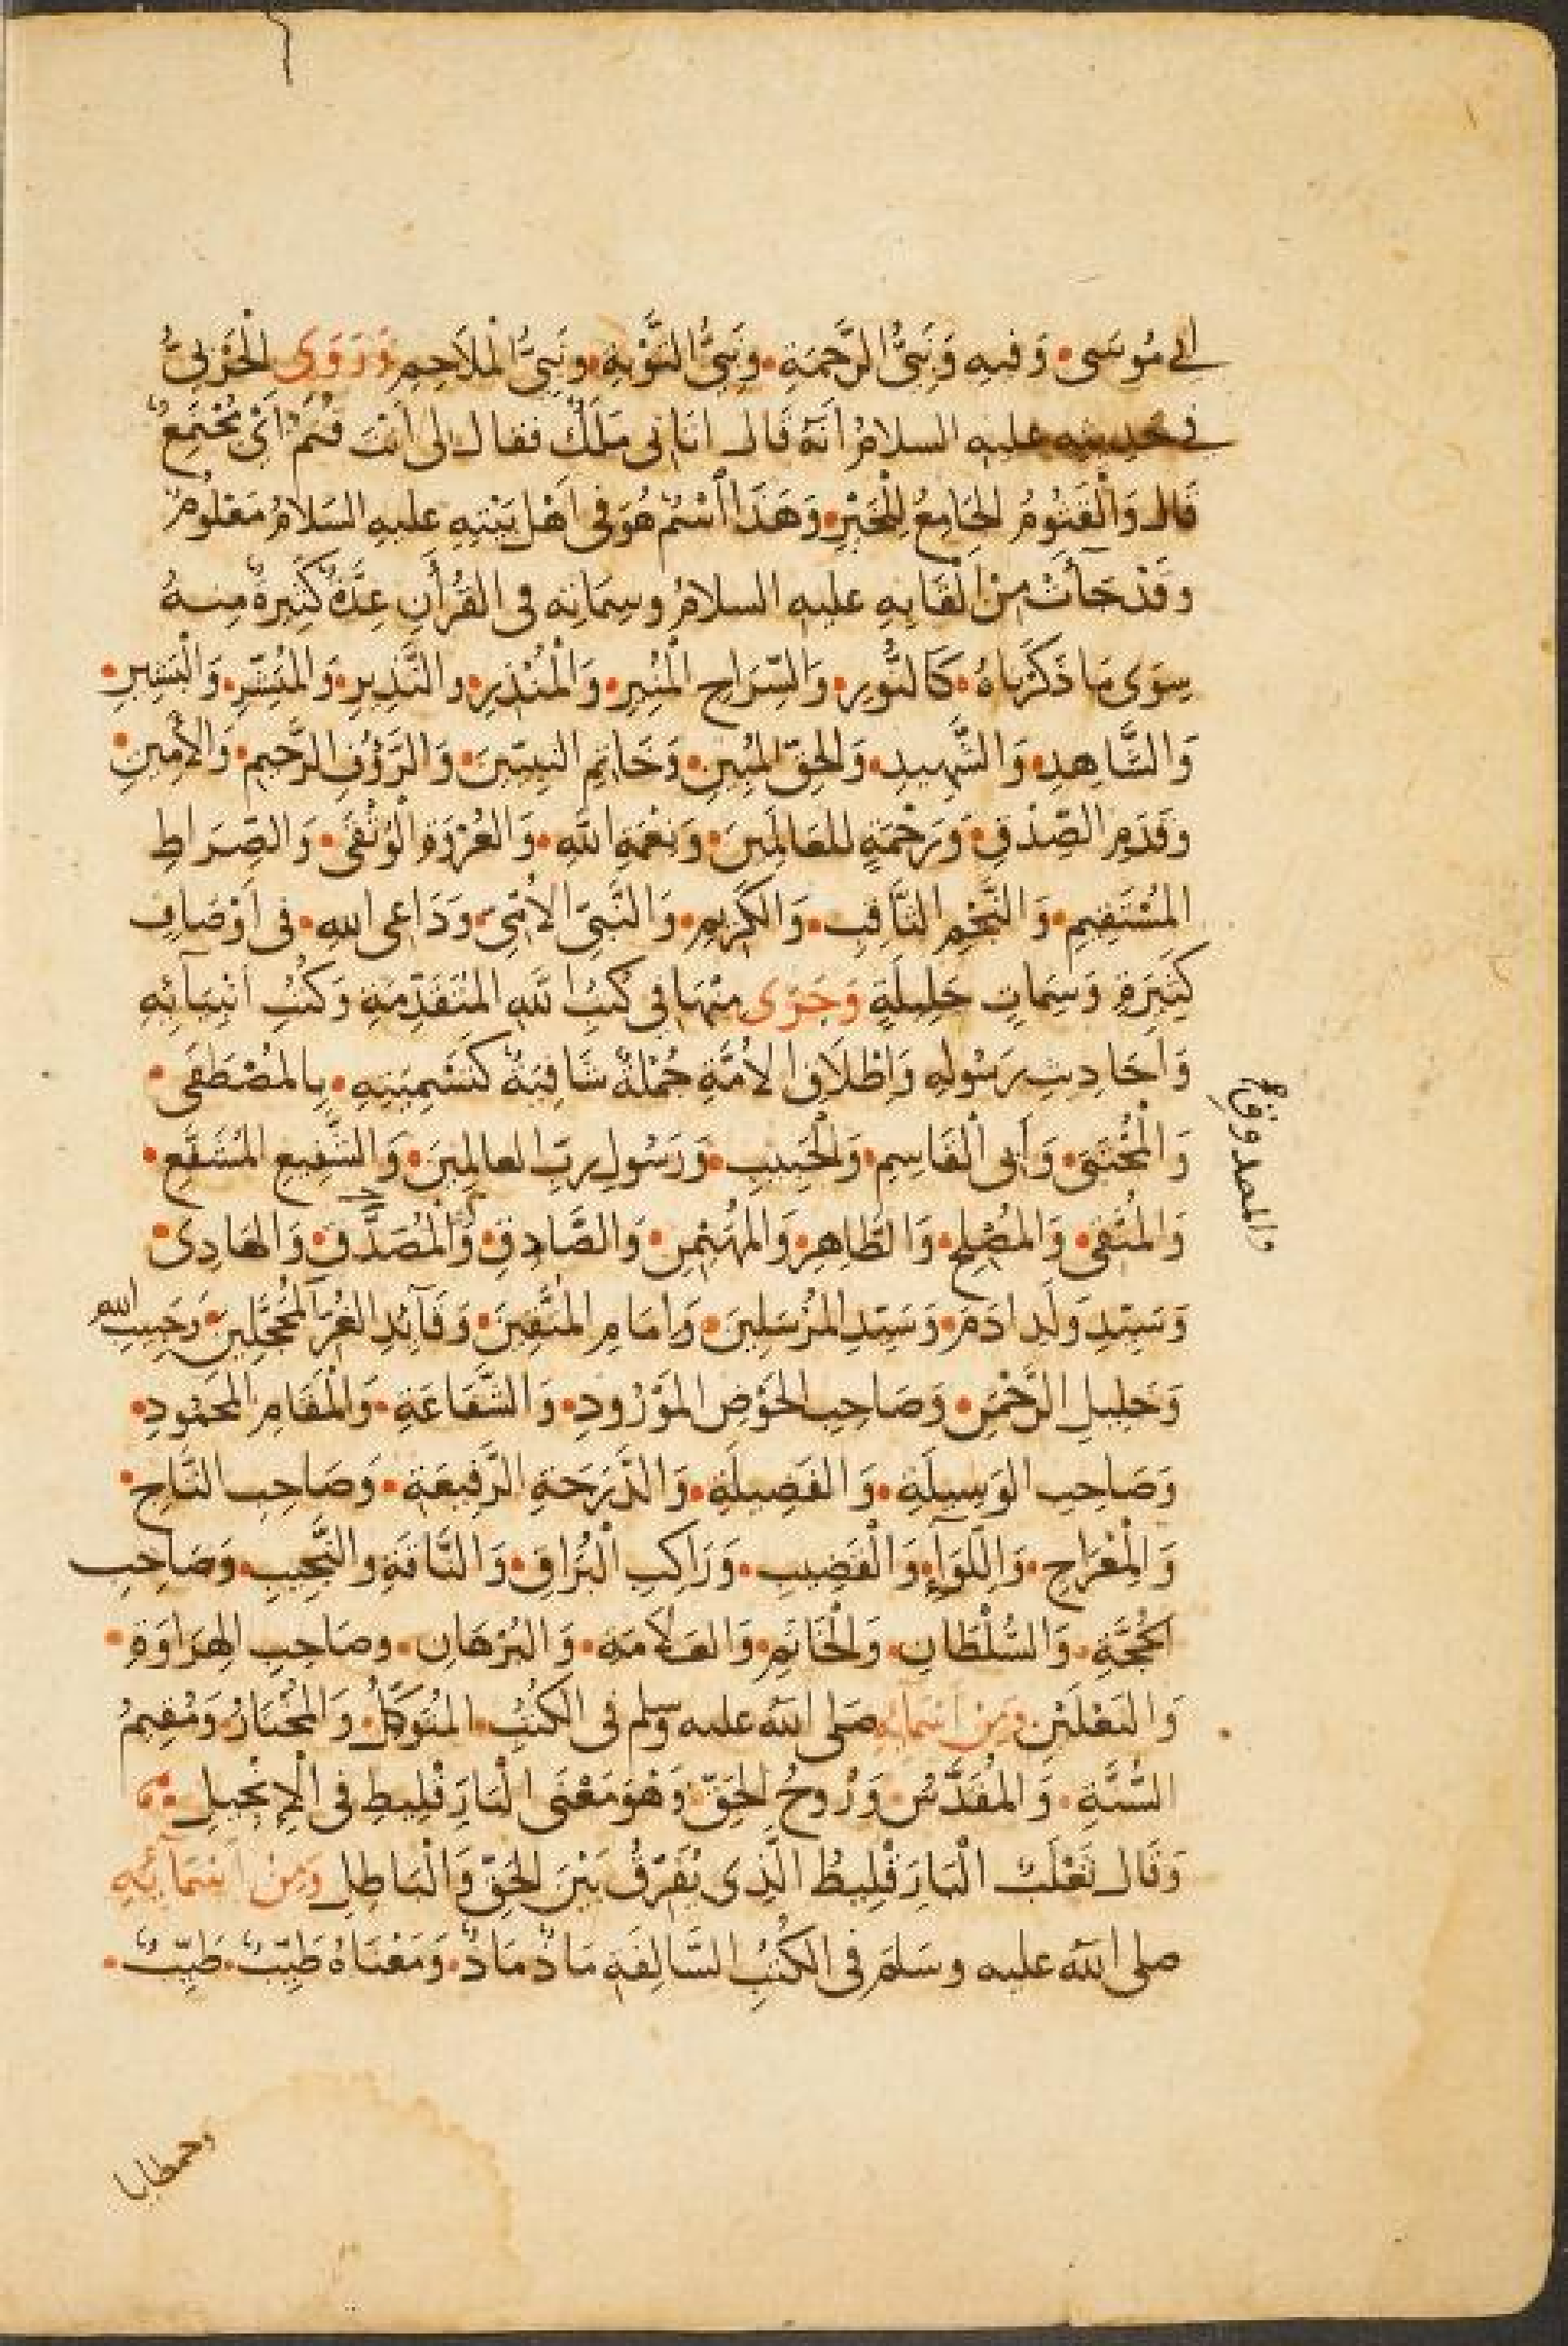 ابى مُوسَى • وَفيه وَنَبِىُّ الرَّحْمَةِ • وَنَبِىُّ التَّوْبَةِ • ونَبِىُّ المَلَاحِمِ وَرَوَى الْحَرْبِىُّ
فى حديثه عليه السلامُ اَنَّهُ قَال اتَانِى مَلَكٌ فقال لى اَنْتَ قُثَمٌ اَىْ مُجْتَمِعٌ
قَال وَالْقَثُومُ الجَامِعُ لِلْخَيْرِ • وَهَذَا اسْمٌ هُوَ فى اَهْل بَيْتِهِ عليه السَلامُ مَعْلُومٌ
وقَدْ جَاَتْ مِنْ الْقَابِهِ عليه السلامُ وسِمَاتِه فى القُرْأَنِ عِدَّةٌ كَثِيرةٌ مِنهُ
سِوَى مَا ذَكَرْنَاهُ • كَالنُّورِ • وَالسِّرَاجِ الْمُنِيرِ • وَالْمُنْذِرِ • والنَّذِيرِ • وَالمُبَشِّرِ • وَالْبَشِيرِ •
وَالشَّاهِدِ • وَالشَّهِيدِ • وَالحَقِّ المُبِينِ • وَخَاتِمِ النبِيِّينَ • وَالرَّؤُفِ الرَّحِيمِ • وَالاَمِينِ •
وقَدَمِ الصِّدْقِ • وَرَحْمَةٍ للعَالَمِينَ • وَنِعْمَةِ اللهِ • وَالعُرْوَةِ الْوُثْقَى • وَالصِّرَاطِ
المُسْتَقِيمِ • وَالنَّجْمِ الثَّاقِبِ • وَالكَرِيمِ • وَالنَّبِىِّ الاُمِّىِّ • وَدَاعِى اللهِ • فى اَوْصَافٍ
كَثِيَرةٍ وَسِمَاتٍ جَلِيلَةٍ وَجَرَى مِنْهَا فى كُتُبِ اللهِ المُتَقَدِّمَةِ وَكُتُبِ اَنْبِيَآئِهِ
وَاَحَادِيثِ رَسُولِهِ وَاِطْلَاقِ الاُمَّةِ جُمْلَةٌ شَافِيَةٌ كَتَسْمِيَتِهِ • بِالمُصْطَفَى •
وَالْمُجْتَبَى • وَاَبِى الْقَاسِمِ • وَالْحَبِيبِ • وَرَسُولِ رَبِّ العالمِينَ • وَالشَّفِيعِ المُشَفَّعِ •
وَالمُتَّقِى • وَالمُصْلِحِ • وَالطَّاهِرِ • وَالمُهَيْمِنِ • وَالصَّادِقِ • وَالْمُصَدَّقِ • وَالهَادِى •
والمصدوق
وَسَيِّدِ وَلَدِ ادَمَ • وَسَيِّدِ المُرْسَلِينَ • وَامَامِ المُتَّقِينَ • وَقَآئِدِ الغُرِّ المُحَجَّلِينَ • وَحَبِيبِ الله
وَخَلِيلِ الرَّحْمَنِ • وَصَاحِبِ الحَوْضِ المَوْرُودِ • وَالشَّفَاعَةِ • وَالْمَقَامِ المَحْمُودِ •
وَصَاحِبِ الوَسِيلَةِ • وَالفَضِيلَةِ • وَالدَّرَجَةِ الرَّفِيعَةِ • وَصَاحِبِ التَّاجِ •
وَالْمِعْرَاجِ • وَاللِّوَآءِ • وَالْقَضِيبِ • وَرَاكِبِ الْبُرَاقِ • وَالنَّاقَةِ والنَّجِيبِ • وَصَاحِبِ
الحُجَّةِ • وَالسُّلْطَانِ • وَالْخَاتَمِ • وَالعَلَامَةِ • وَالبُرْهَانِ • وصَاحِبِ الهِرَاوَةِ •
وَالنَعْلَيْنِ وَمِنْ اَسْمَآئِهِ صَلى اللهُ عليه وسلم فى الكُتُبِ • المُتَوَكِّلُ • وَالْمُخْتَارُ • وَمُقِيمُ
السُّنَّةِ • وَالمُقَدَّسُ • وَرُوحُ الحَقِّ • وَهْوَ مَعْنَى الْبَارَقْلِيطِ فى الْاِنْجِيلِ •
وَقَال ثَعْلَبُ الْبَارَقْلِيطُ الَّذِى يُفَرِّقُ بَيْنَ الْحَقِّ وَالْبَاطِلِ وَمِنْ اَسْمَآئِهِ
صلى اللهُ عليه وسَلمَ فى الكُتُبِ السَّالِفَةِ مَاذْ مَاذْ • وَمَعْنَاهُ طَيِّبٌ • طَيِّبٌ •
وحمطايا